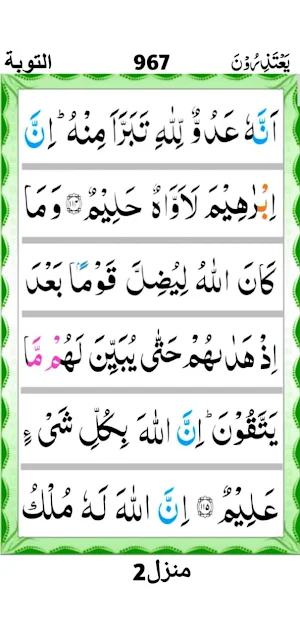 يَعْتَذِرُوْنَ 967 التوبة
اَنَّهٗ عَدُوٌّ لِّلّٰهِ تَبَرَّاَ مِنْهُ ؕ اِنَّ
اِبْرٰهِيْمَ لَاَوَّاهٌ حَلِيْمٌ ۝۱۱۴ وَمَا
كَانَ اللّٰهُ لِيُضِلَّ قَوْمًۢا بَعْدَ
اِذْ هَدٰىهُمْ حَتّٰى يُبَيِّنَ لَهُمْ مَّا
يَتَّقُوْنَ ؕ اِنَّ اللّٰهَ بِكُلِّ شَىْءٍ
عَلِيْمٌ ۝۱۱۵ اِنَّ اللّٰهَ لَهٗ مُلْكُ
منزل2